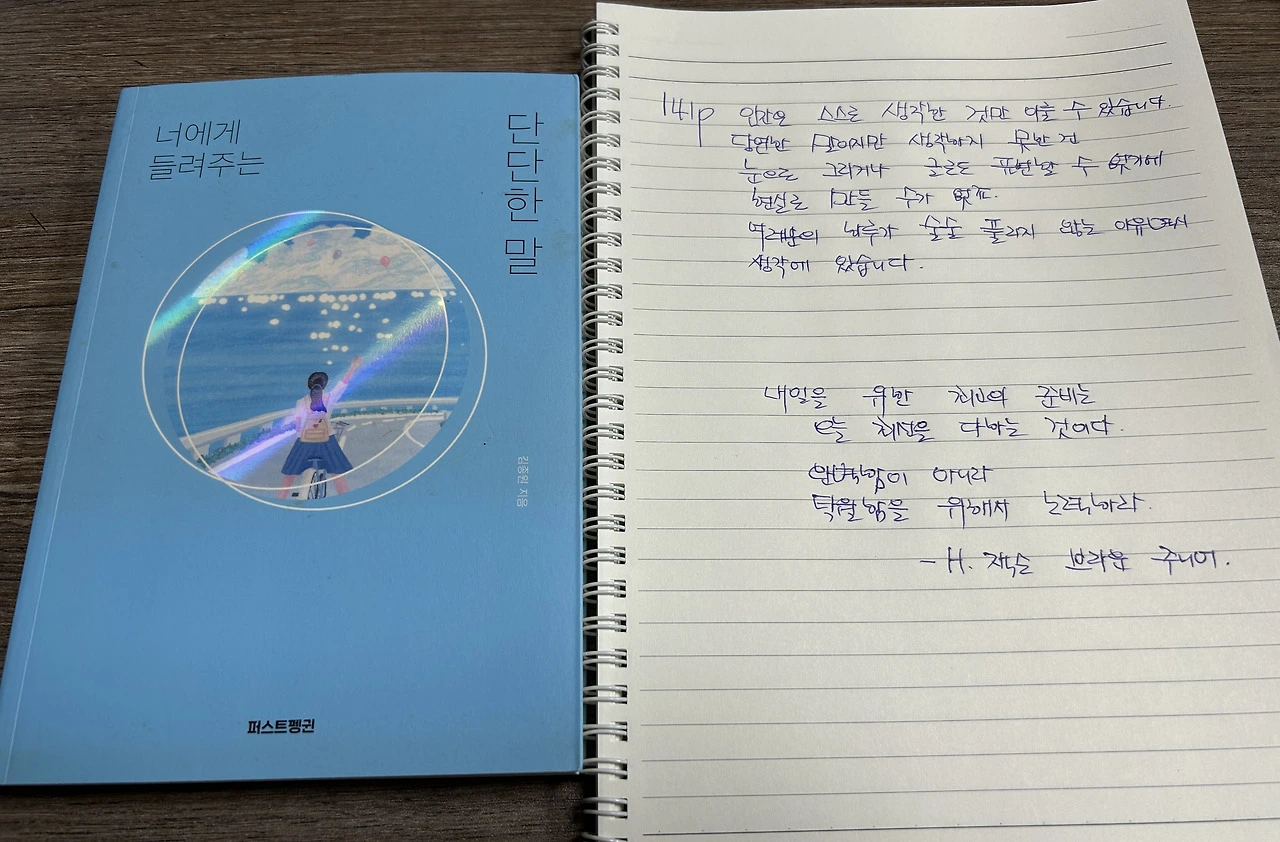 너에게
들려주는
단단한 말
김종원 지음
퍼스트펭귄
141p 인간은 스스로 생각한 것만 이룰 수 있습니다.
당연한 말이지만 생각하지 못한 건
눈으로 그리거나 글로도 표현할 수 없기에
현실로 만들 수가 없죠.
하루가 술술 풀리지 않는 이유 역시
생각에 있습니다.
내일을 위한 최고의 준비는
오늘 최선을 다하는 것이다.
완벽함이 아니라
탁월함을 위해서 노력하라.
- H. 잭슨 브라운 주니어.